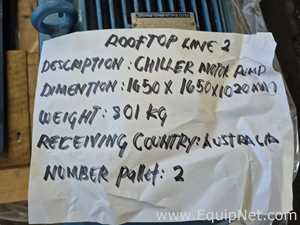 ROOFTOP LINE 2
DESCRIPTION: CHILLER MOTOR PUMP
DIMENTION: 1650 X 1650X1020 MM
WEIGHT: 801 KG
RECEIVING COUNTRY: AUSTRALIA
NUMBER pallet: 2
www.EquipNet.com